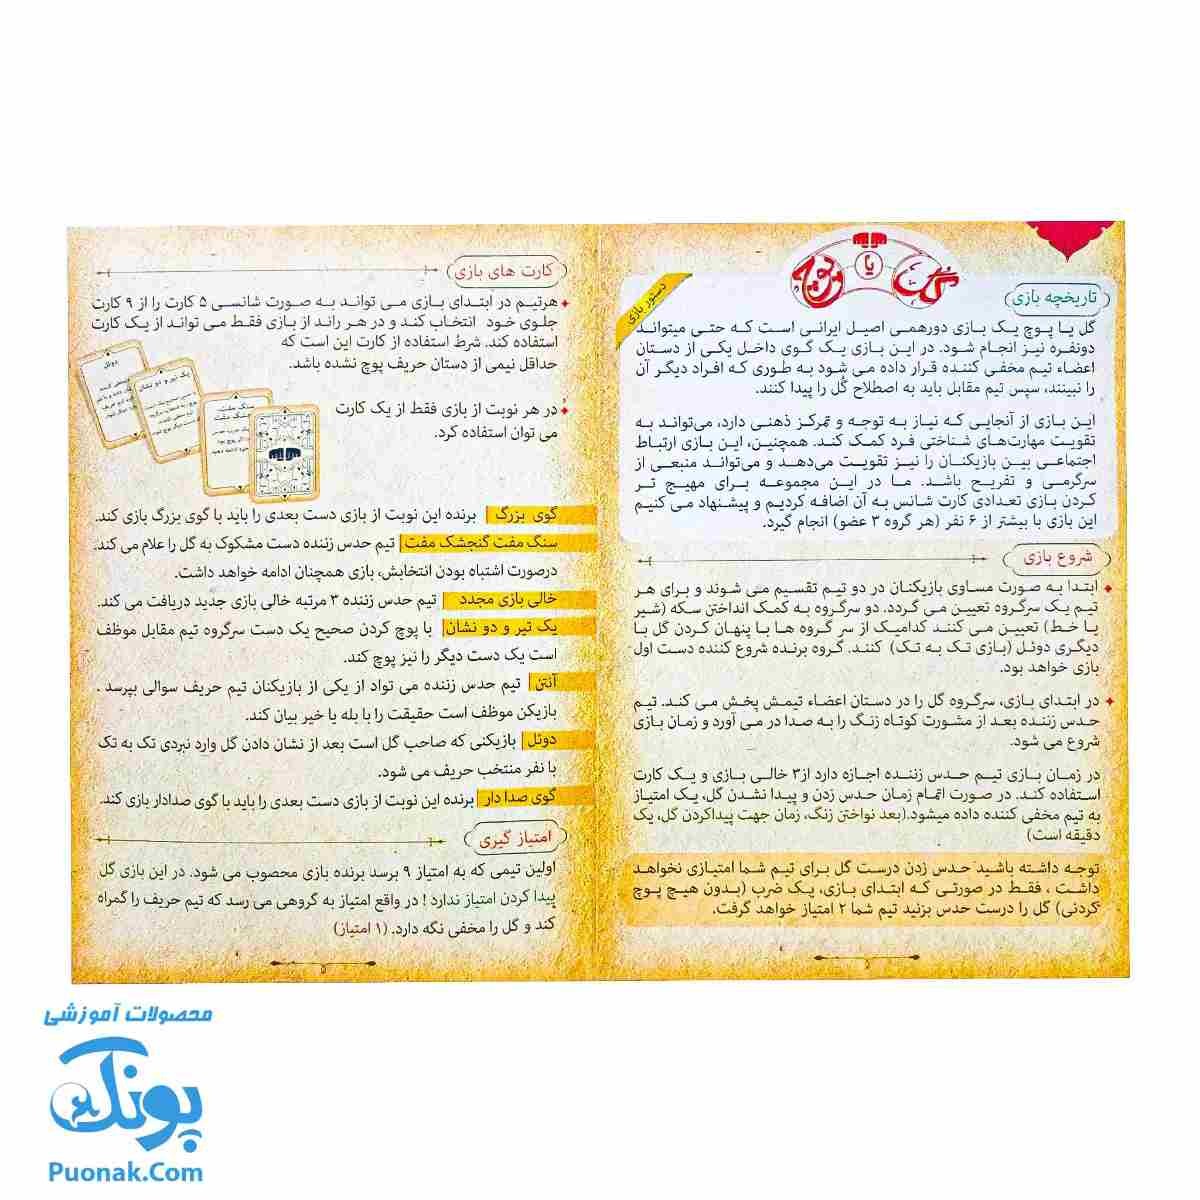 گل یا پوچ
دستور بازی
تاریخچه بازی
گل یا پوچ یک بازی دورهمی اصیل ایرانی است که حتی میتواند
دونفره نیز انجام شود. در این بازی یک گوی داخل یکی از دستان
اعضاء تیم مخفی کننده قرار داده می شود به طوری که افراد دیگر آن
را نبینند، سپس تیم مقابل باید به اصطلاح گُل را پیدا کنند.
این بازی از آنجایی که نیاز به توجه و تمرکز ذهنی دارد، می‌تواند به
تقویت مهارت‌های شناختی فرد کمک کند. همچنین، این بازی ارتباط
اجتماعی بین بازیکنان را نیز تقویت می‌دهد و می‌تواند منبعی از
سرگرمی و تفریح باشد. ما در این مجموعه برای مهیج تر
کردن بازی تعدادی کارت شانس به آن اضافه کردیم و پیشنهاد می کنیم
این بازی با بیشتر از ۶ نفر (هر گروه ۳ عضو) انجام گیرد.
شروع بازی
ابتدا به صورت مساوی بازیکنان در دو تیم تقسیم می شوند و برای هر
تیم یک سرگروه تعیین می گردد. دو سرگروه به کمک انداختن سکه (شیر
یا خط) تعیین می کنند کدامیک از سر گروه ها با پنهان کردن گل با
دیگری دوئل (بازی تک به تک) کنند. گروه برنده شروع کننده دست اول
بازی خواهد بود.
در ابتدای بازی، سرگروه گل را در دستان اعضاء تیمش پخش می کند. تیم
حدس زننده بعد از مشورت کوتاه زنگ را به صدا در می آورد و زمان بازی
شروع می شود.
در زمان بازی تیم حدس زننده اجازه دارد از۳ خالی بازی و یک کارت
استفاده کند. در صورت اتمام زمان حدس زدن و پیدا نشدن گل، یک امتیاز
به تیم مخفی کننده داده میشود.(بعد نواختن زنگ، زمان جهت پیداکردن گل، یک
دقیقه است)
توجه داشته باشید حدس زدن درست گل برای تیم شما امتیازی نخواهد
داشت ، فقط در صورتی که ابتدای بازی، یک ضرب (بدون هیچ پوچ
کردنی) گل را درست حدس بزنید تیم شما ۲ امتیاز خواهد گرفت.
کارت های بازی
هرتیم در ابتدای بازی می تواند به صورت شانسی ۵ کارت را از ۹ کارت
جلوی خود انتخاب کند و در هر راند از بازی فقط می تواند از یک کارت
استفاده کند. شرط استفاده از کارت این است که
حداقل نیمی از دستان حریف پوچ نشده باشد.
در هر نوبت از بازی فقط از یک کارت
می توان استفاده کرد.
دوئل
یک تیر و دو نشان
سنگ مفت
گنجشک مفت
گوی بزرگ برنده این نوبت از بازی دست بعدی را باید با گوی بزرگ بازی کند.
سنگ مفت گنجشک مفت تیم حدس زننده دست مشکوک به گل را علام می کند.
درصورت اشتباه بودن انتخابش، بازی همچنان ادامه خواهد داشت.
خالی بازی مجدد تیم حدس زننده ۳ مرتبه خالی بازی جدید دریافت می کند.
یک تیر و دو نشان با پوچ کردن صحیح یک دست سرگروه تیم مقابل موظف
است یک دست دیگر را نیز پوچ کند.
آنتن تیم حدس زننده می تواد از یکی از بازیکنان تیم حریف سوالی بپرسد .
بازیکن موظف است حقیقت را با بله یا خیر بیان کند.
دوئل بازیکنی که صاحب گل است بعد از نشان دادن گل وارد نبردی تک به تک
با نفر منتخب حریف می شود.
گوی صدا دار برنده این نوبت از بازی دست بعدی را باید با گوی صدادار بازی کند.
امتیاز گیری
اولین تیمی که به امتیاز ۹ برسد برنده بازی محصوب می شود. در این بازی گل
پیدا کردن امتیاز ندارد ! در واقع امتیاز به گروهی می رسد که تیم حریف را گمراه
کند و گل را مخفی نگه دارد. (۱ امتیاز)
محصولات آموزشی
پونک
Puonak.Com